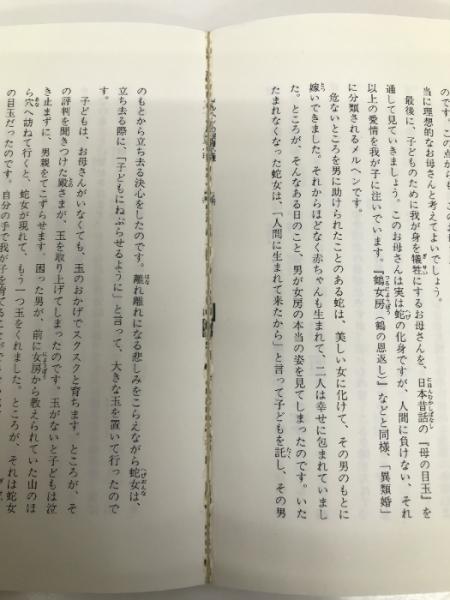 のです。この点からも、このお
当に理想的なお母さんと考えてよいでしょう。
最後に、子どものために我が身を犠牲にするお母さんを、日本昔話の『母の目玉』を
通して見ていきましょう。このお母さんは実は蛇の化身ですが、人間に負けない、それ
以上の愛情を我が子に注いでいます。『鶴女房（鶴の恩返し）』などと同様、「異類婚」
に分類されるメルヘンです。
危ないところを男に助けられたことのある蛇は、美しい女に化けて、その男のもとに
嫁いできました。それからほどなく赤ちゃんも生まれて、二人は幸せに包まれていまし
た。ところが、そんなある日のこと、男が女房の本当の姿を見てしまったのです。いた
たまれなくなった蛇女は、「人間に生まれて来たから」と言って子どもを託し、その男
のもとから立ち去る決心をしたのです。離れ離れになる悲しみをこらえながら蛇女は、
立ち去る際に、「子どもにねぶらせるように」と言って、大きな玉を置いて行ったので
す。
子どもは、お母さんがいなくても、玉のおかげでスクスクと育ちます。ところが、そ
の評判を聞きつけた殿さまが、玉を取り上げてしまったのです。玉がないと子どもは泣
き止まずに、男親をてこずらせます。困った男が、前に女房から教えられていた山のほ
ら穴へ訪ねて行くと、蛇女が現れて、もう一つ玉をくれました。ところが、それは蛇女
の目玉だったのです。自分の手で我が子を育てることが